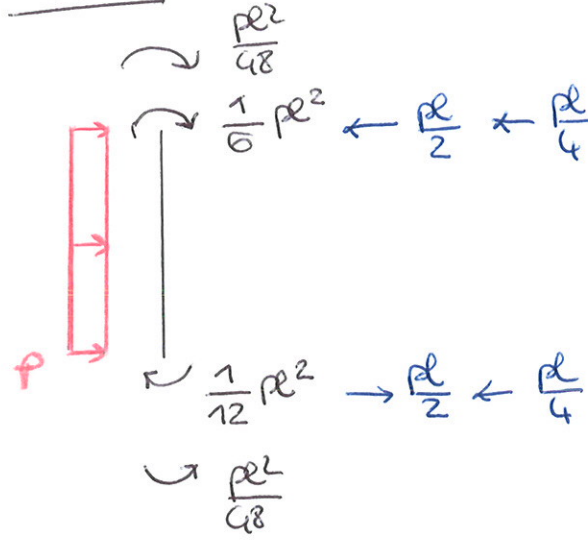 pl²/48
1/6 pl² ← pl/2 ← pl/4
p
1/12 pl² → pl/2 ← pl/4
pl²/48